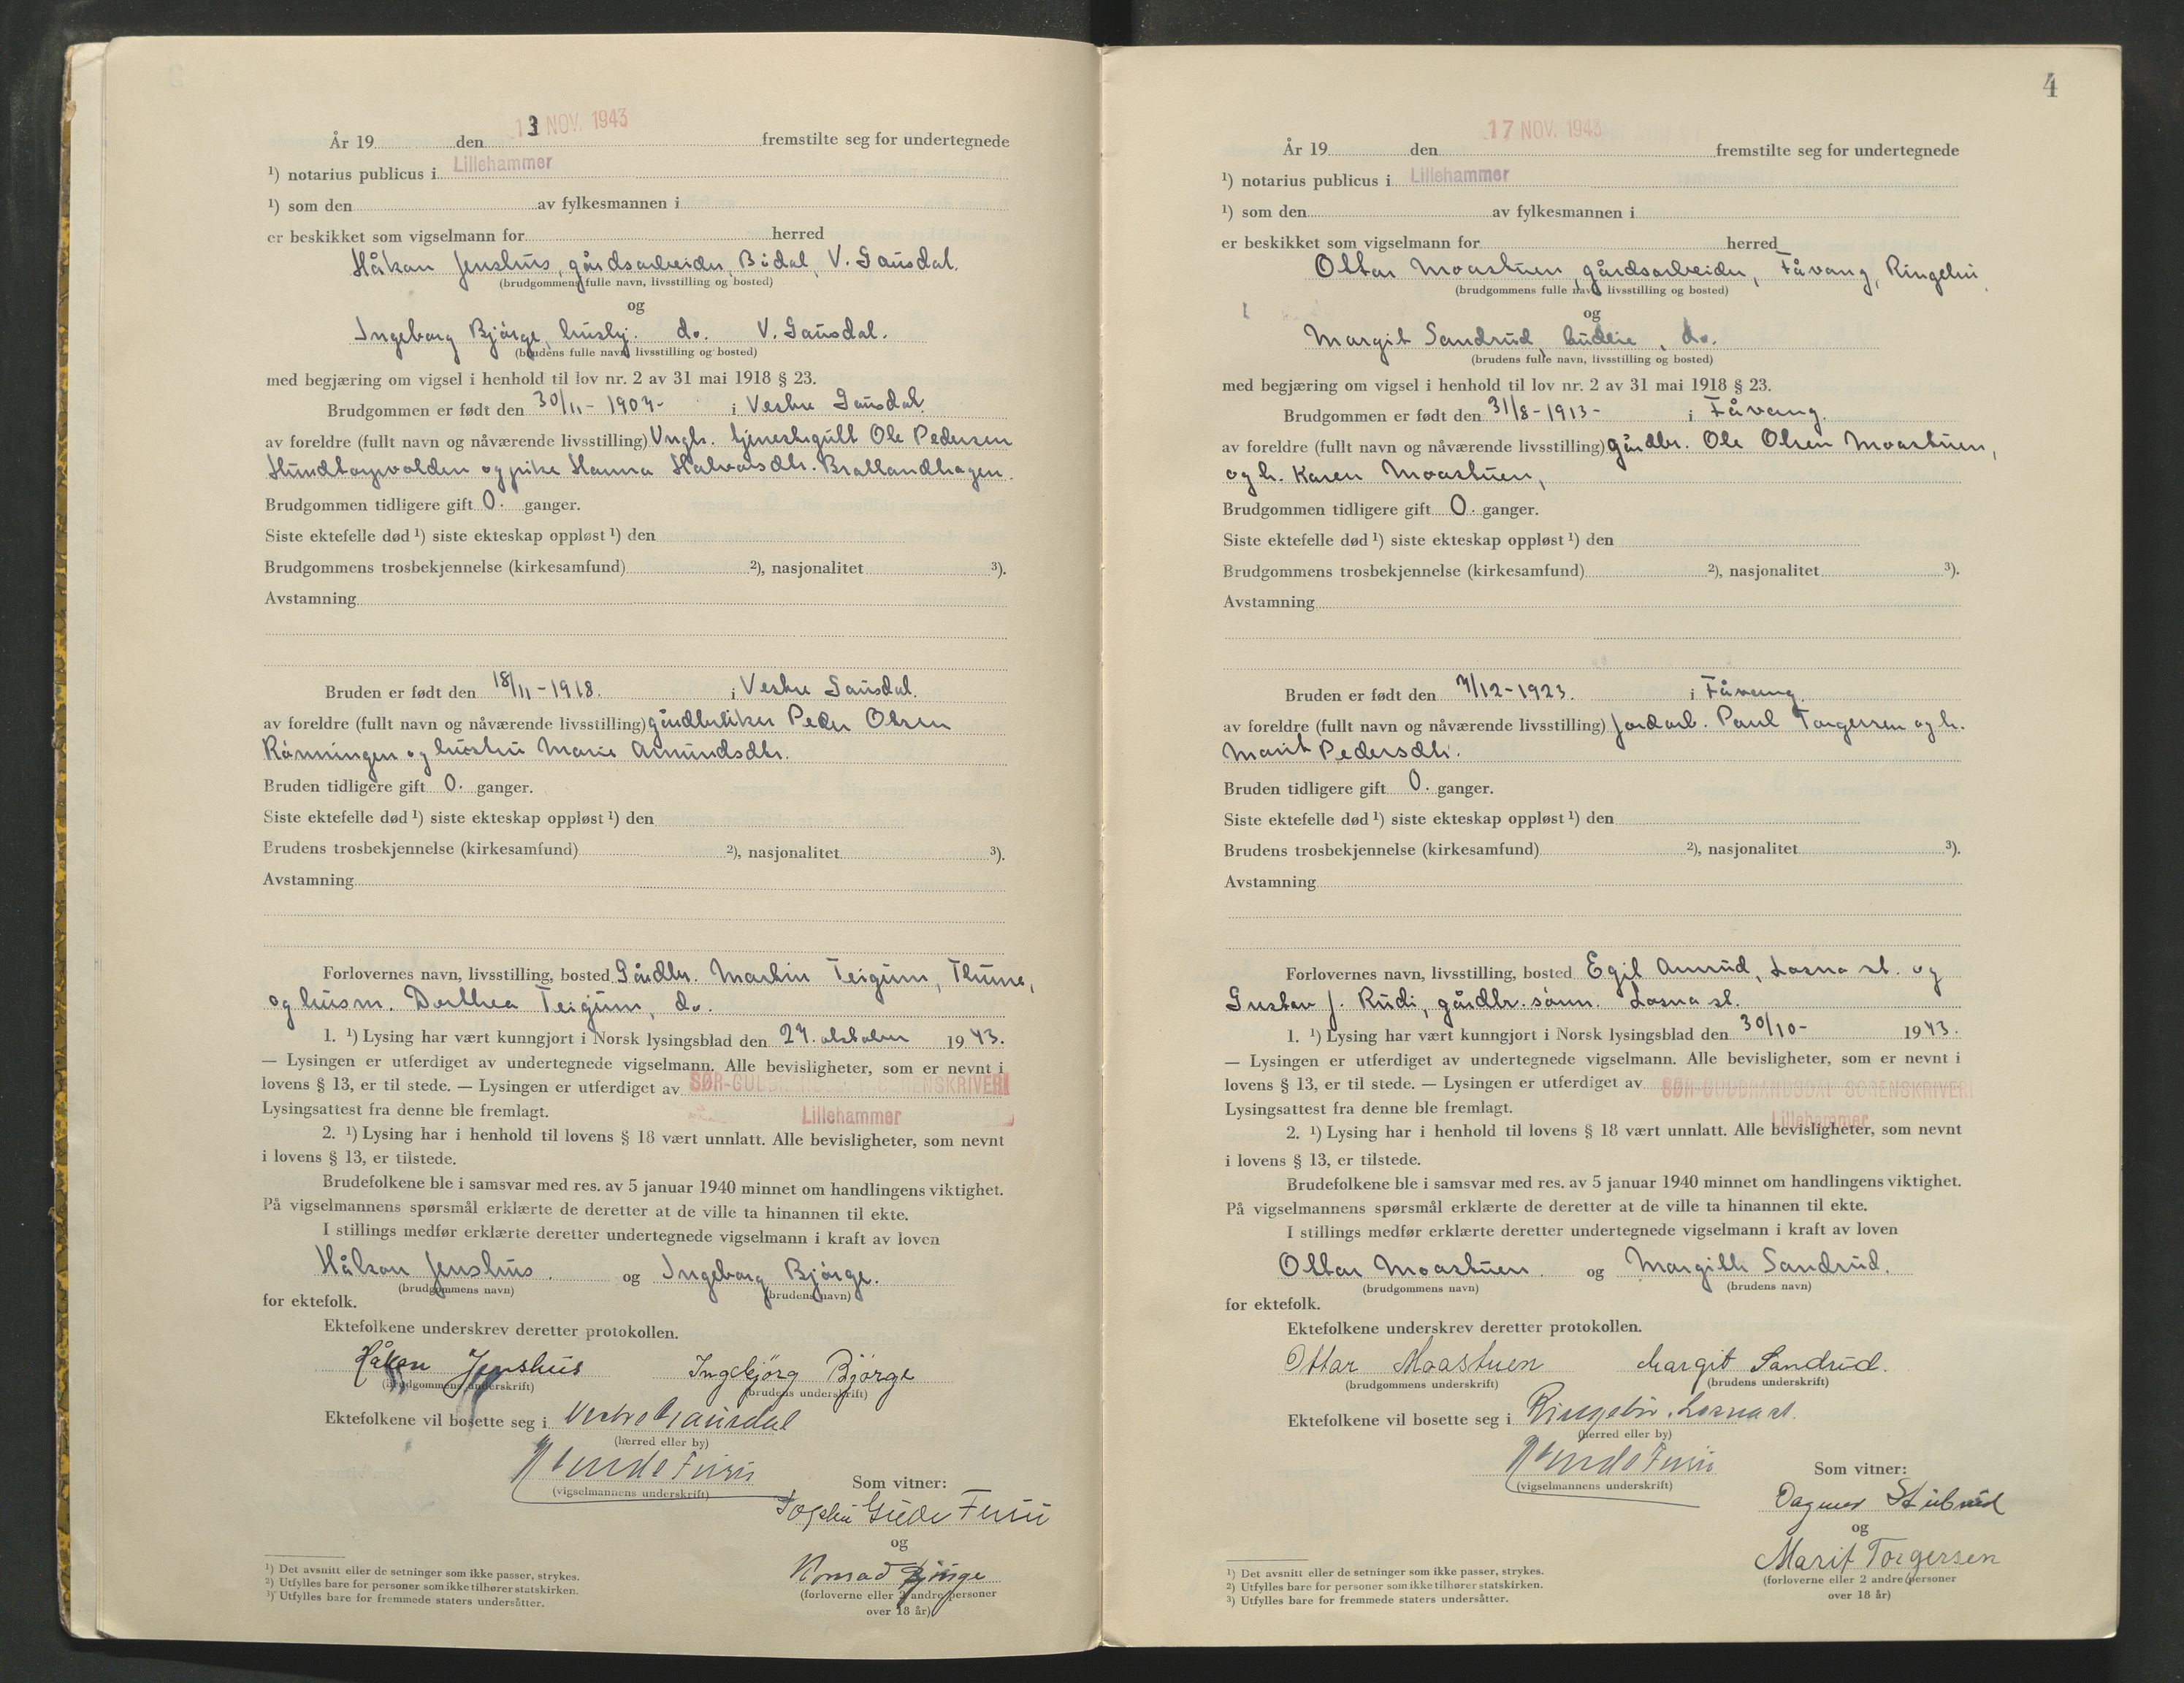 År 19 den 13 NOV. 1943 fremstilte seg for undertegnede
¹) notarius publicus i Lillehammer
¹) som den av fylkesmannen i
er beskikket som vigselmann for herred
Håkon Jenshus, gårdsarbeider, Bödal, V. Gausdal.
(brudgommens fulle navn, livsstilling og bosted)
og
Ingeborg Bjørge, hushj. do. V. Gausdal.
(brudens fulle navn, livsstilling og bosted)
med begjæring om vigsel i henhold til lov nr. 2 av 31 mai 1918 § 23.
Brudgommen er født den 30/11- 1907- i Vestre Gausdal.
av foreldre (fullt navn og nåværende livsstilling) Ungk. tjenestegutt Ole Pedersen
og pike Hanna Halvorsdtr. Brattlandhagen.
Brudgommen tidligere gift 0. ganger.
Siste ektefelle død ¹) siste ekteskap oppløst ¹) den
Brudgommens trosbekjennelse (kirkesamfund) ²), nasjonalitet ³).
Avstamning
Bruden er født den 18/11-1918. i Vestre Gausdal.
av foreldre (fullt navn og nåværende livsstilling) gårdbruker Peder Olsen
Rönningen og hustru Marie Amundsdtr.
Bruden tidligere gift 0. ganger.
Siste ektefelle død ¹) siste ekteskap oppløst ¹) den
Brudens trosbekjennelse (kirkesamfund) ²), nasjonalitet ³).
Avstamning
Forlovernes navn, livsstilling, bosted Gårdbr. Martin Teigum, Thune,
og husm. Dorthea Teigum, do.
1. ¹) Lysing har vært kunngjort i Norsk lysingsblad den 27. oktober 1943.
— Lysingen er utferdiget av undertegnede vigselmann. Alle bevisligheter, som er nevnt i
lovens § 13, er til stede. — Lysingen er utferdiget av SØR-GUDBRANDSDAL SORENSKRIVERI
Lysingsattest fra denne ble fremlagt. Lillehammer
2. ¹) Lysing har i henhold til lovens § 18 vært unnlatt. Alle bevisligheter, som nevnt
i lovens § 13, er tilstede.
Brudefolkene ble i samsvar med res. av 5 januar 1940 minnet om handlingens viktighet.
På vigselmannens spørsmål erklærte de deretter at de ville ta hinannen til ekte.
I stillings medfør erklærte deretter undertegnede vigselmann i kraft av loven
Håkon Jenshus. og Ingeborg Bjørge.
(brudgommens navn) (brudens navn)
for ektefolk.
Ektefolkene underskrev deretter protokollen.
Håkon Jenshus Ingebjörg Bjørge
(brudgommens underskrift) (brudens underskrift)
Ektefolkene vil bosette seg i Vestre Gausdal
(herred eller by)
(vigselmannens underskrift)
Som vitner:
Gude Furu
og
Konrad Bjørge
(forloverne eller 2 andre personer
over 18 år)
¹) Det avsnitt eller de setninger som ikke passer, strykes.
²) Utfylles bare for personer som ikke tilhører statskirken.
³) Utfylles bare for fremmede staters undersåtter.
4
År 19 den 17 NOV. 1943 fremstilte seg for undertegnede
¹) notarius publicus i Lillehammer
¹) som den av fylkesmannen i
er beskikket som vigselmann for herred
Ottar Moastuen, gårdsarbeider, Fåvang, Ringebu
(brudgommens fulle navn, livsstilling og bosted)
og
Margit Sandrud, budeie, do.
(brudens fulle navn, livsstilling og bosted)
med begjæring om vigsel i henhold til lov nr. 2 av 31 mai 1918 § 23.
Brudgommen er født den 31/8-1913- i Fåvang.
av foreldre (fullt navn og nåværende livsstilling) gårdbr. Ole Olsen Moastuen,
og h. Karen Moastuen,
Brudgommen tidligere gift 0. ganger.
Siste ektefelle død ¹) siste ekteskap oppløst ¹) den
Brudgommens trosbekjennelse (kirkesamfund) ²), nasjonalitet ³).
Avstamning
Bruden er født den 7/12-1923. i Fåvang
av foreldre (fullt navn og nåværende livsstilling) jordarb. Paul Torgersen og h.
Marit Pedersdtr.
Bruden tidligere gift 0. ganger.
Siste ektefelle død ¹) siste ekteskap oppløst ¹) den
Brudens trosbekjennelse (kirkesamfund) ²), nasjonalitet ³).
Avstamning
Forlovernes navn, livsstilling, bosted Egil Amrud, Losna st. og
Gustav J. Rudi, gårdbr. sönn. Losna st.
1. ¹) Lysing har vært kunngjort i Norsk lysingsblad den 30/10- 1943.
— Lysingen er utferdiget av undertegnede vigselmann. Alle bevisligheter, som er nevnt i
lovens § 13, er til stede. — Lysingen er utferdiget av SØR-GUDBRANDSDAL SORENSKRIVERI
Lysingsattest fra denne ble fremlagt. Lillehammer
2. ¹) Lysing har i henhold til lovens § 18 vært unnlatt. Alle bevisligheter, som nevnt
i lovens § 13, er tilstede.
Brudefolkene ble i samsvar med res. av 5 januar 1940 minnet om handlingens viktighet.
På vigselmannens spørsmål erklærte de deretter at de ville ta hinannen til ekte.
I stillings medfør erklærte deretter undertegnede vigselmann i kraft av loven
Ottar Moastuen. og Margith Sandrud.
(brudgommens navn) (brudens navn)
for ektefolk.
Ektefolkene underskrev deretter protokollen.
Ottar Moastuen Margit Sandrud.
(brudgommens underskrift) (brudens underskrift)
Ektefolkene vil bosette seg i Ringebu, Losna st.
(herred eller by)
(vigselmannens underskrift)
Som vitner:
Dagmar Stubrud
og
Marit Torgersen
(forloverne eller 2 andre personer
over 18 år)
¹) Det avsnitt eller de setninger som ikke passer, strykes.
²) Utfylles bare for personer som ikke tilhører statskirken.
³) Utfylles bare for fremmede staters undersåtter.